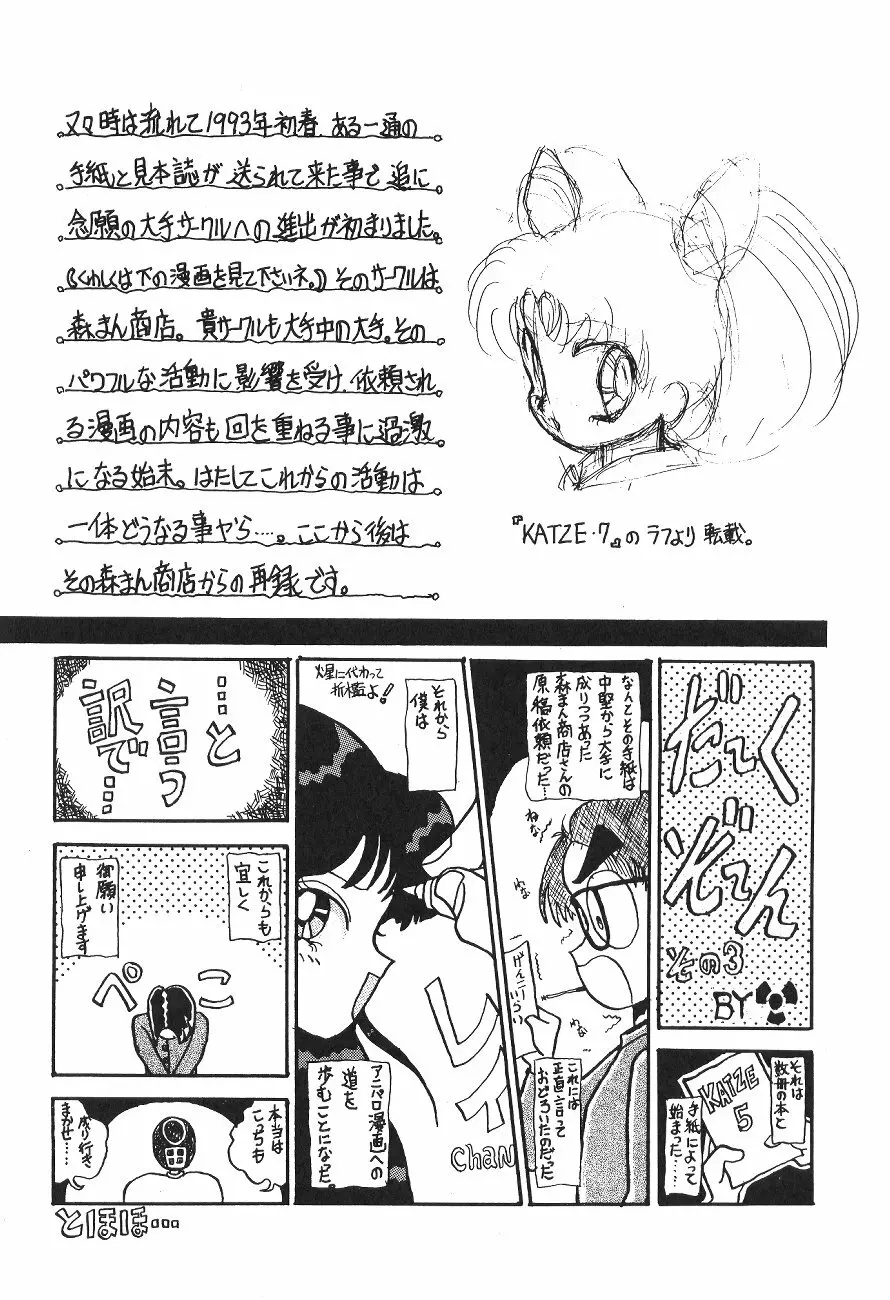 又々時は流れて1993年初春、ある一通の
手紙と見本誌が送られて来た事で追に
念願の大手サークルへの進出が初まりました。
(くわしくは下の漫画を見て下さいネ。)そのサークルは
森まん商店。貴サークルも大手中の大手。その
パワフルな活動に影響を受け、依頼され
る漫画の内容も回を重ねる事に過激
になる始末。はたしてこれからの活動は
一体どうなる事やら…。ここから後は
その森まん商店からの再録です。
『KATZE・7』のラフより転載。
だーく
ぞーん
その3
BY
それは
数冊の本と
手紙によって
始まった…
KATZE
5
なんとその手紙は
中堅から大手に
成りつつあった
森まん商店さんの
原稿依頼だった…
わな
わな
わな
げんこー
いらい
これには
正直言って
おどろいたのだった
それから
僕は
煌に代わって
折檻よ!
レイ
Chan
アニパロ漫画への
道を
歩むことになった。
…と
言う
訳で…
これからも
宜しく
御願い
申し上げます
ペこ
本当は
こっちも
成り行き
まかせ……
とほほ…